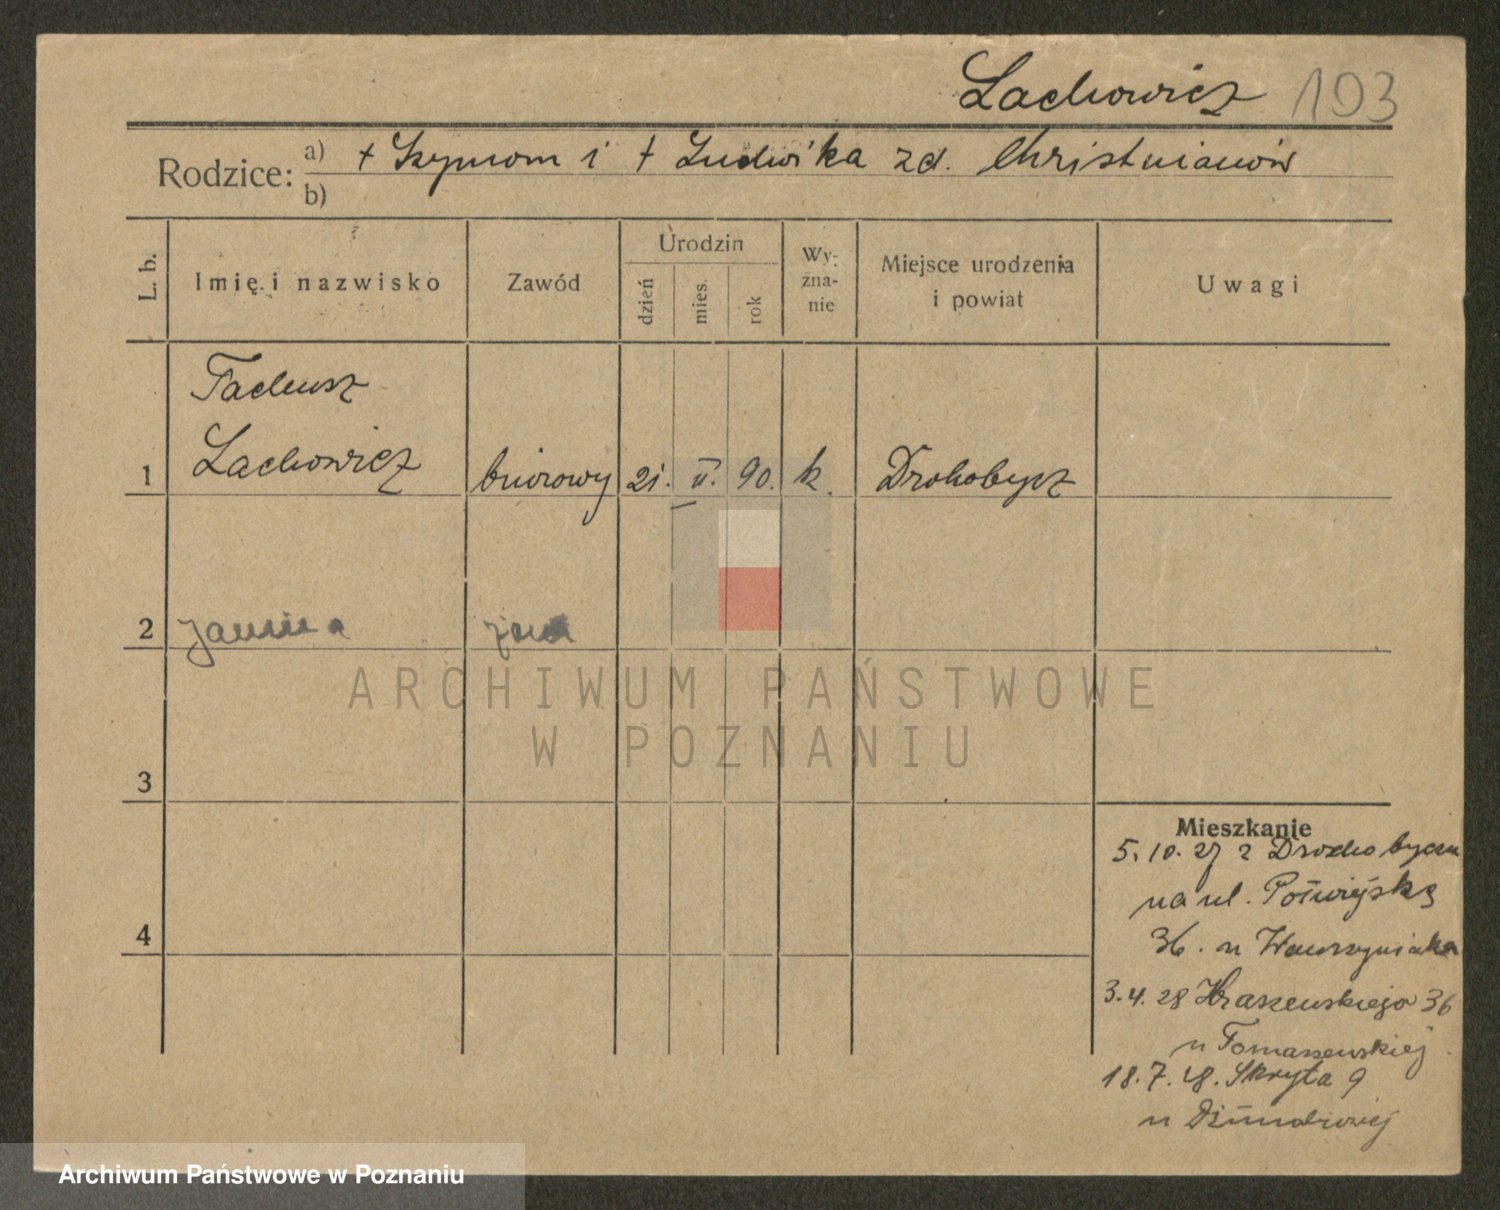 Lachowicz 103
Rodzice: a) + Szymon i + Ludwika zd. Christmanów
b)
L. b. Imię i nazwisko Zawód Urodzin dzień mies. rok Wy-zna-nie Miejsce urodzenia i powiat Uwagi
Tadeusz
1 Lachowicz biurowy 21. II. 90. k. Drohobycz
2 Janina żona
3
4
Mieszkanie
5. 10. 27 z Drohobycza
na ul.
36. u Wawrzyniaka
3. 4. 28 Kraszewskiego 36
u Tomaszewskiej
18. 7. 28. Skryta 9
u
ARCHIWUM PAŃSTWOWE
W POZNANIU
Archiwum Państwowe w Poznaniu